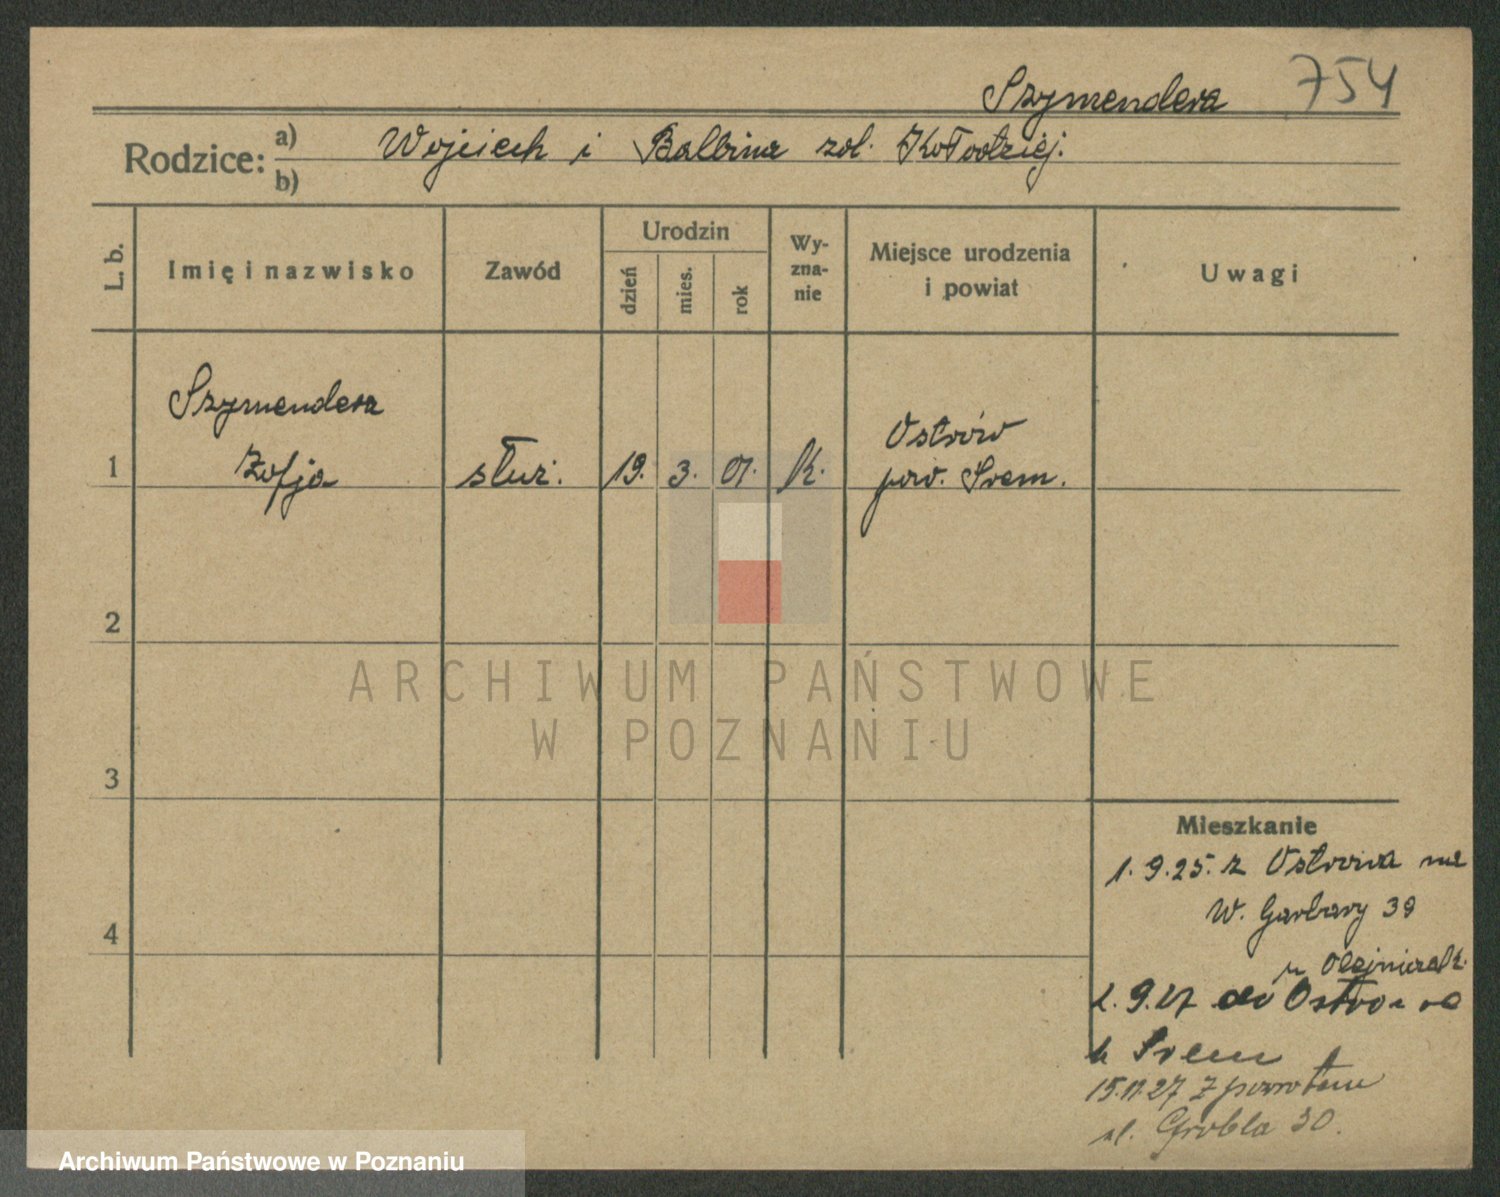 Szymendera 754
Rodzice: a) Wojciech i Balbina zol. Kołodziej.
b)
L. b. Imię i nazwisko Zawód Urodzin Wy-zna-nie Miejsce urodzenia i powiat Uwagi
dzień mies. rok
Szymendera Ostrów
1 Zofja służ. 19. 3. 01. k. pow. Śrem.
2
ARCHIWUM PAŃSTWOWE
W POZNANIU
3
Mieszkanie
1. 9. 25. z Ostrowa na
W. Garbary 39
4
u Olejniczak.
1. 9. 27 do Ostrowa
k Śrem
15.11.27 z powrotem
ul. Grobla 30.
Archiwum Państwowe w Poznaniu